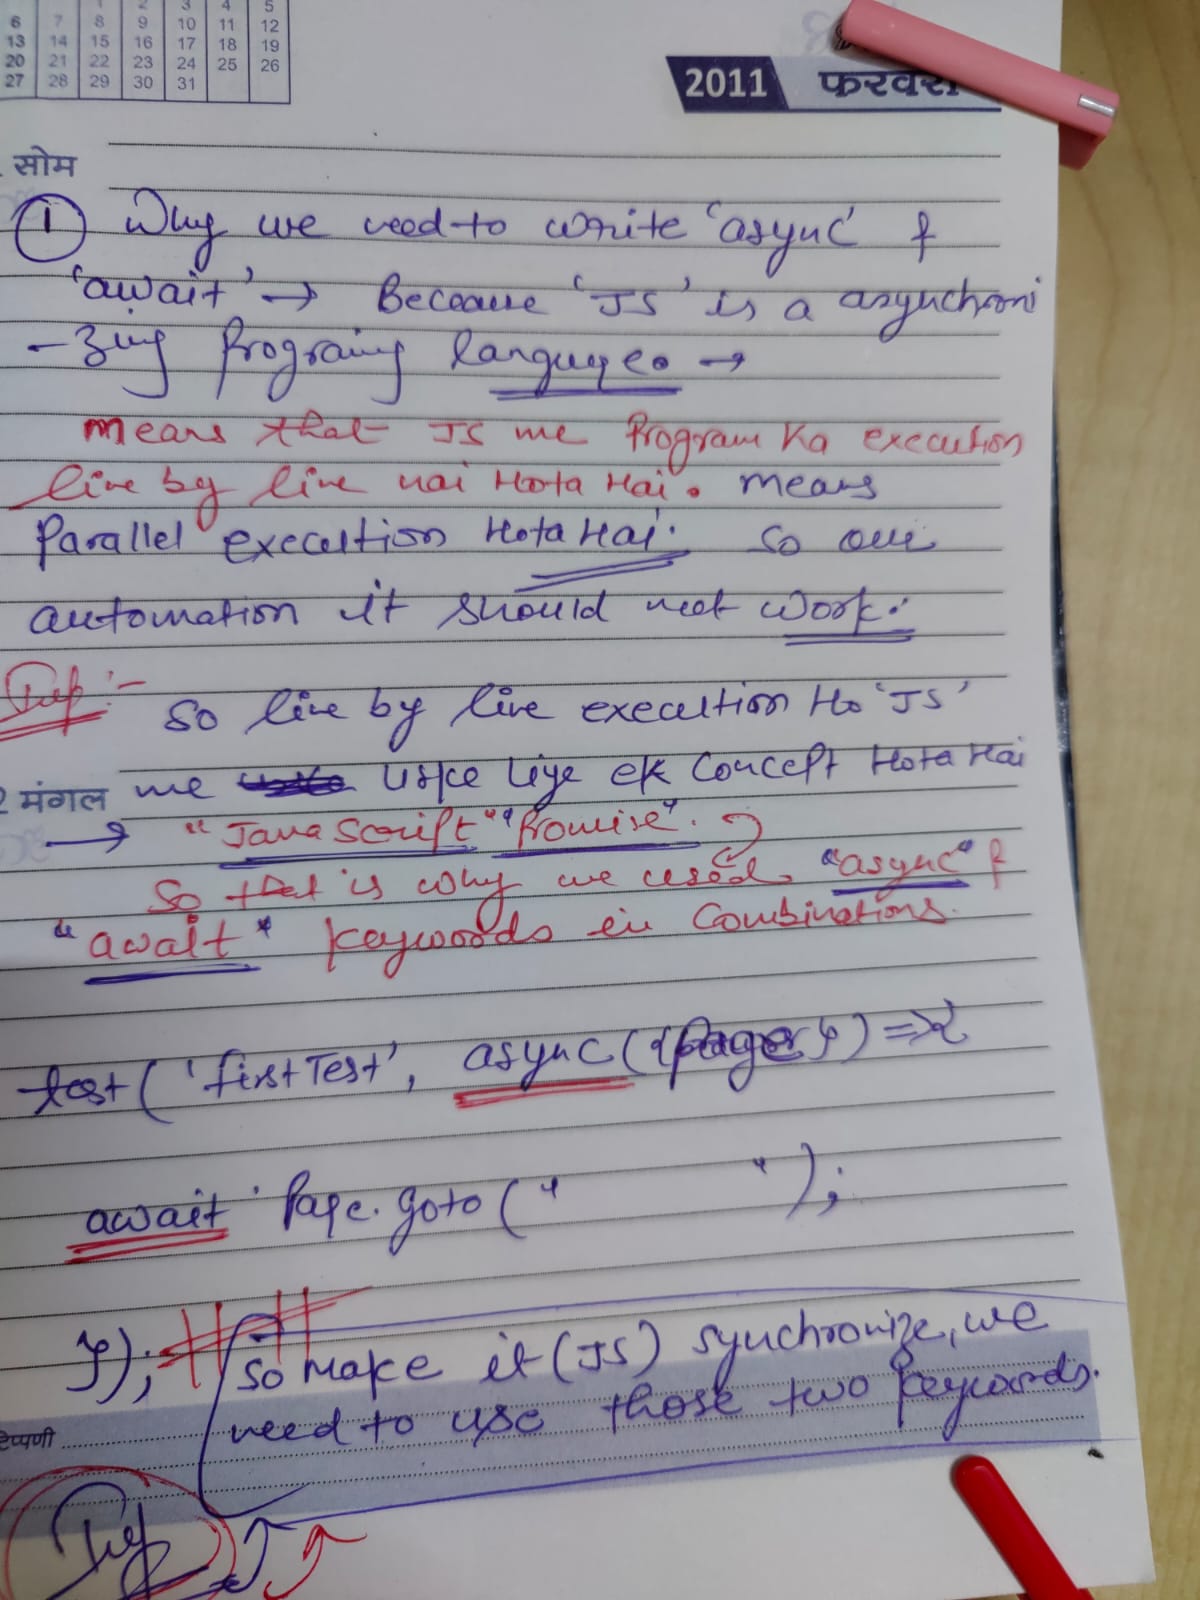 2 3 4 5
6 7 8 9 10 11 12
13 14 15 16 17 18 19
20 21 22 23 24 25 26
27 28 29 30 31
2011 फरवरी
सोम
① Why we need to write 'async' &
'await' → Because 'JS' is a asynchroni
-zing Programing language. →
means that JS me Program Ka execution
line by line nai Hota Hai. means
Parallel execution Hota Hai. So our
automation it should not work.
Imp :- So line by line execution Ho 'JS'
2 मंगल me uske liye ek Concept Hota Hai
→ "JavaScript" "Promise".
So that is why we used "async" &
"await" keywords in Combinations.
test('firstTest', async({page})=>{
await Page.goto(" ");
});
So make it (JS) synchronize, we
need to use those two keywords.
टिप्पणी
Imp